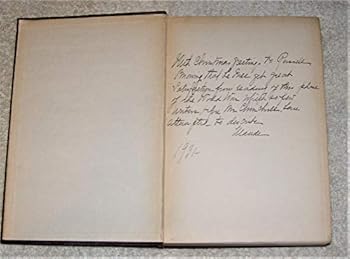 With Christmas Greetings to Russell
Knowing that he will get great
satisfaction from reading of this phase
of the World War which so few
writers
attempted to describe
Maude